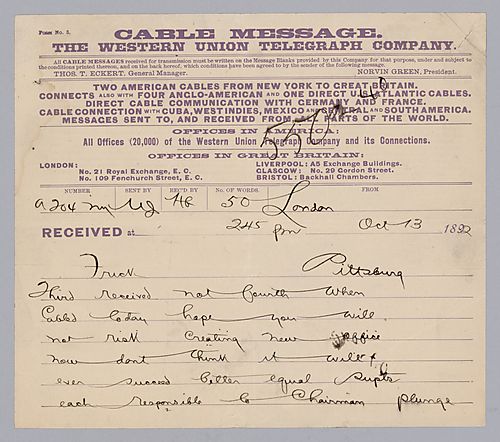 FORM NO. 5.
CABLE MESSAGE.
THE WESTERN UNION TELEGRAPH COMPANY.
ALL CABLE MESSAGES received for transmission must be written on the Message Blanks provided by this Company for that purpose, under and subject to
the conditions printed thereon, and on the back hereof, which conditions have been agreed to by the sender of the following message.
THOS. T. ECKERT, General Manager. NORVIN GREEN, President.
TWO AMERICAN CABLES FROM NEW YORK TO GREAT BRITAIN.
CONNECTS ALSO WITH FOUR ANGLO-AMERICAN AND ONE DIRECT U.S. ATLANTIC CABLES.
DIRECT CABLE COMMUNICATION WITH GERMANY AND FRANCE.
CABLE CONNECTION WITH CUBA, WEST INDIES, MEXICO AND CENTRAL AND SOUTH AMERICA.
MESSAGES SENT TO, AND RECEIVED FROM ALL PARTS OF THE WORLD.
OFFICES IN AMERICA:
All Offices (20,000) of the Western Union Telegraph Company and its Connections.
OFFICES IN GREAT BRITAIN:
LONDON: LIVERPOOL: A5 Exchange Buildings.
No. 21 Royal Exchange, E. C. GLASGOW: No. 29 Gordon Street.
No. 109 Fenchurch Street, E. C. BRISTOL: Backhall Chambers.
NUMBER SENT BY REC'D BY NO. OF WORDS. FROM
50 London
RECEIVED at 245 pm Oct 13 1892
Frick Pittsburg
Third received not fourth when
Cabled today hope you will
not risk creating new office
now dont think it will
ever succeed better equal supts
each responsible to Chairman plunge